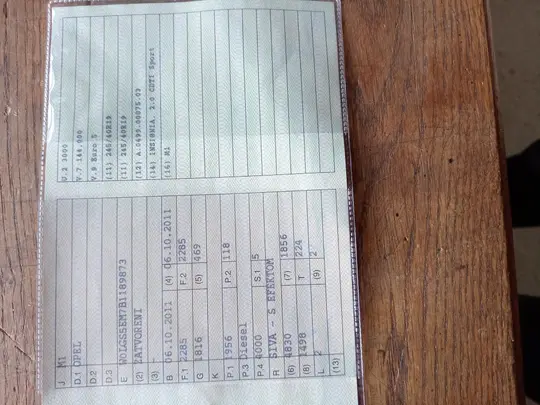 J M1
D.1 OPEL
D.2
D.3
E W0LGS5EM7B1189873
(2) ZATVORENI
(3)
B 06.10.2011 (4) 06.10.2011
F.1 2285 F.2 2285
G 1816 (5) 469
K
P.1 1956 P.2 118
P.3 Diesel
P.4 4000 S.1 5
R SIVA - S EFEKTOM
(6) 4830 (7) 1856
(8) 1498 T 224
L 2 (9) 2
(13)
U.2 3000
V.7 144,000
V.9 Euro 5
(11) 245/40R19
(11) 245/40R19
(14) INSIGNIA, 2.0 CDTI Sport
(16) M1